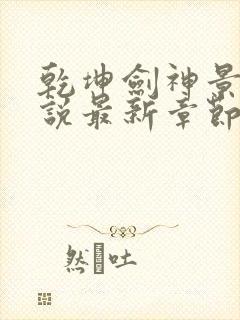 乾坤劍神景
說最新章節
然 吐